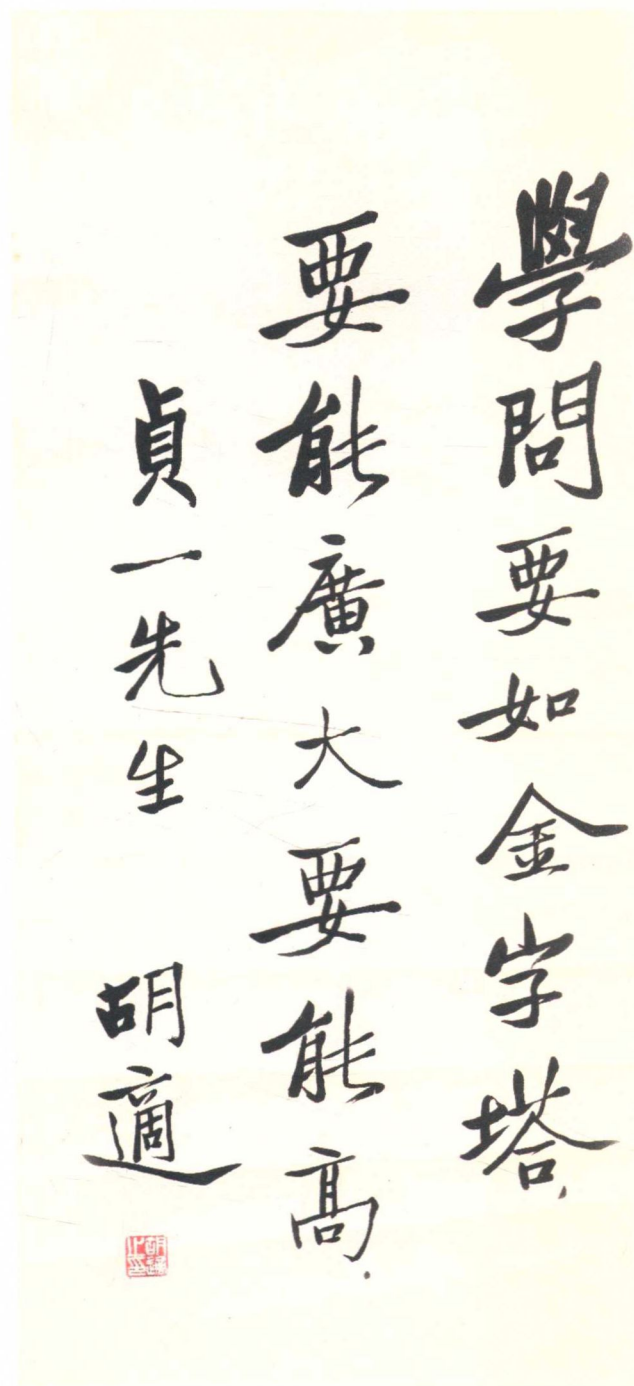 學問要如金字塔，
要能廣大要能高．
貞一先生 胡適
胡適之印